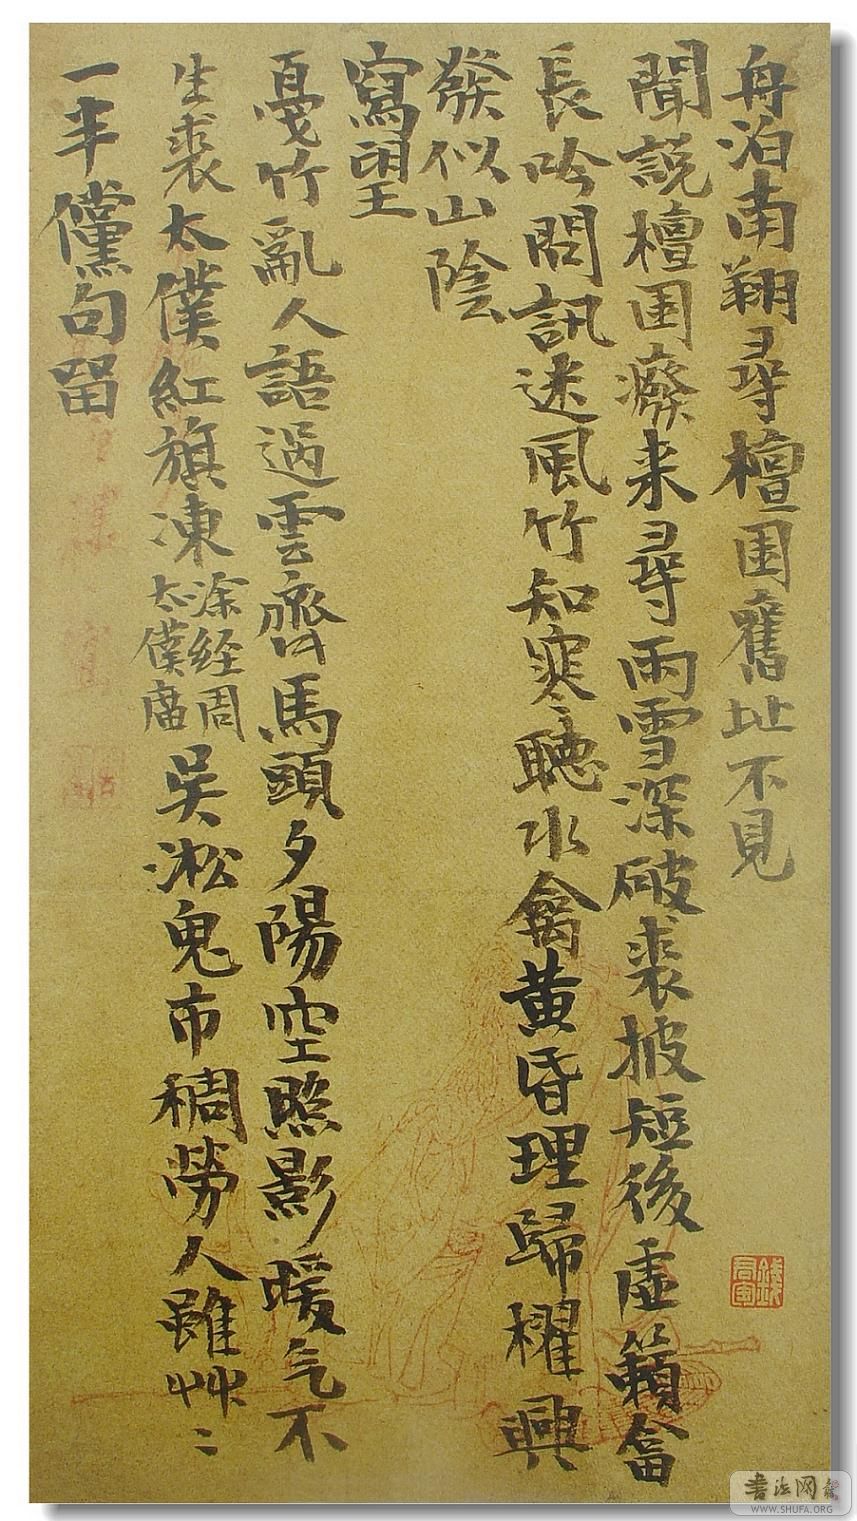 舟泊南翔尋檀園舊址不見
聞說檀園癈来尋雨雪深破裘披短後虛籟畣
長吟問訊迷風竹知寒聽水禽黄昏理歸櫂興
發似山陰
寫望
戞竹亂人語過雲齊馬頭夕陽空照影暖气不
生裘太僕紅旗凍涂經周太僕庿吳淞鬼市稠勞人雖艸〻
一半儻句留
书法网
WWW.SHUFA.ORG